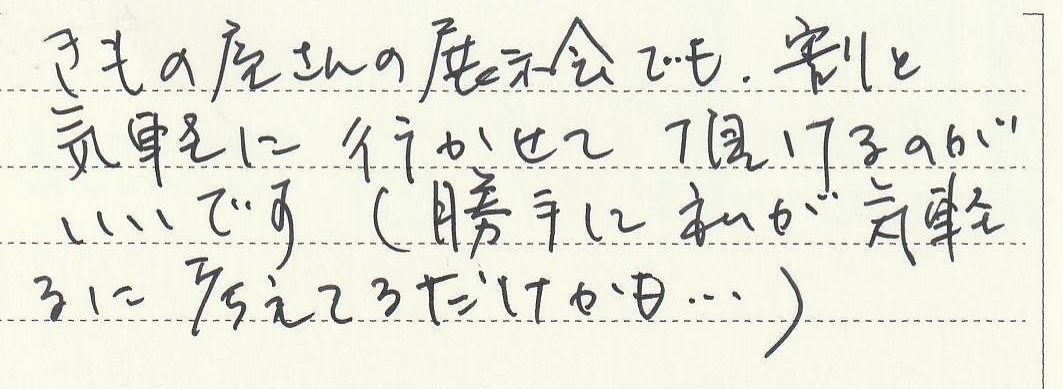 きもの屋さんの展示会でも、割と
気軽に行かせて頂けるのが
いいです（勝手に私が気軽
るに考えてるだけかも…）